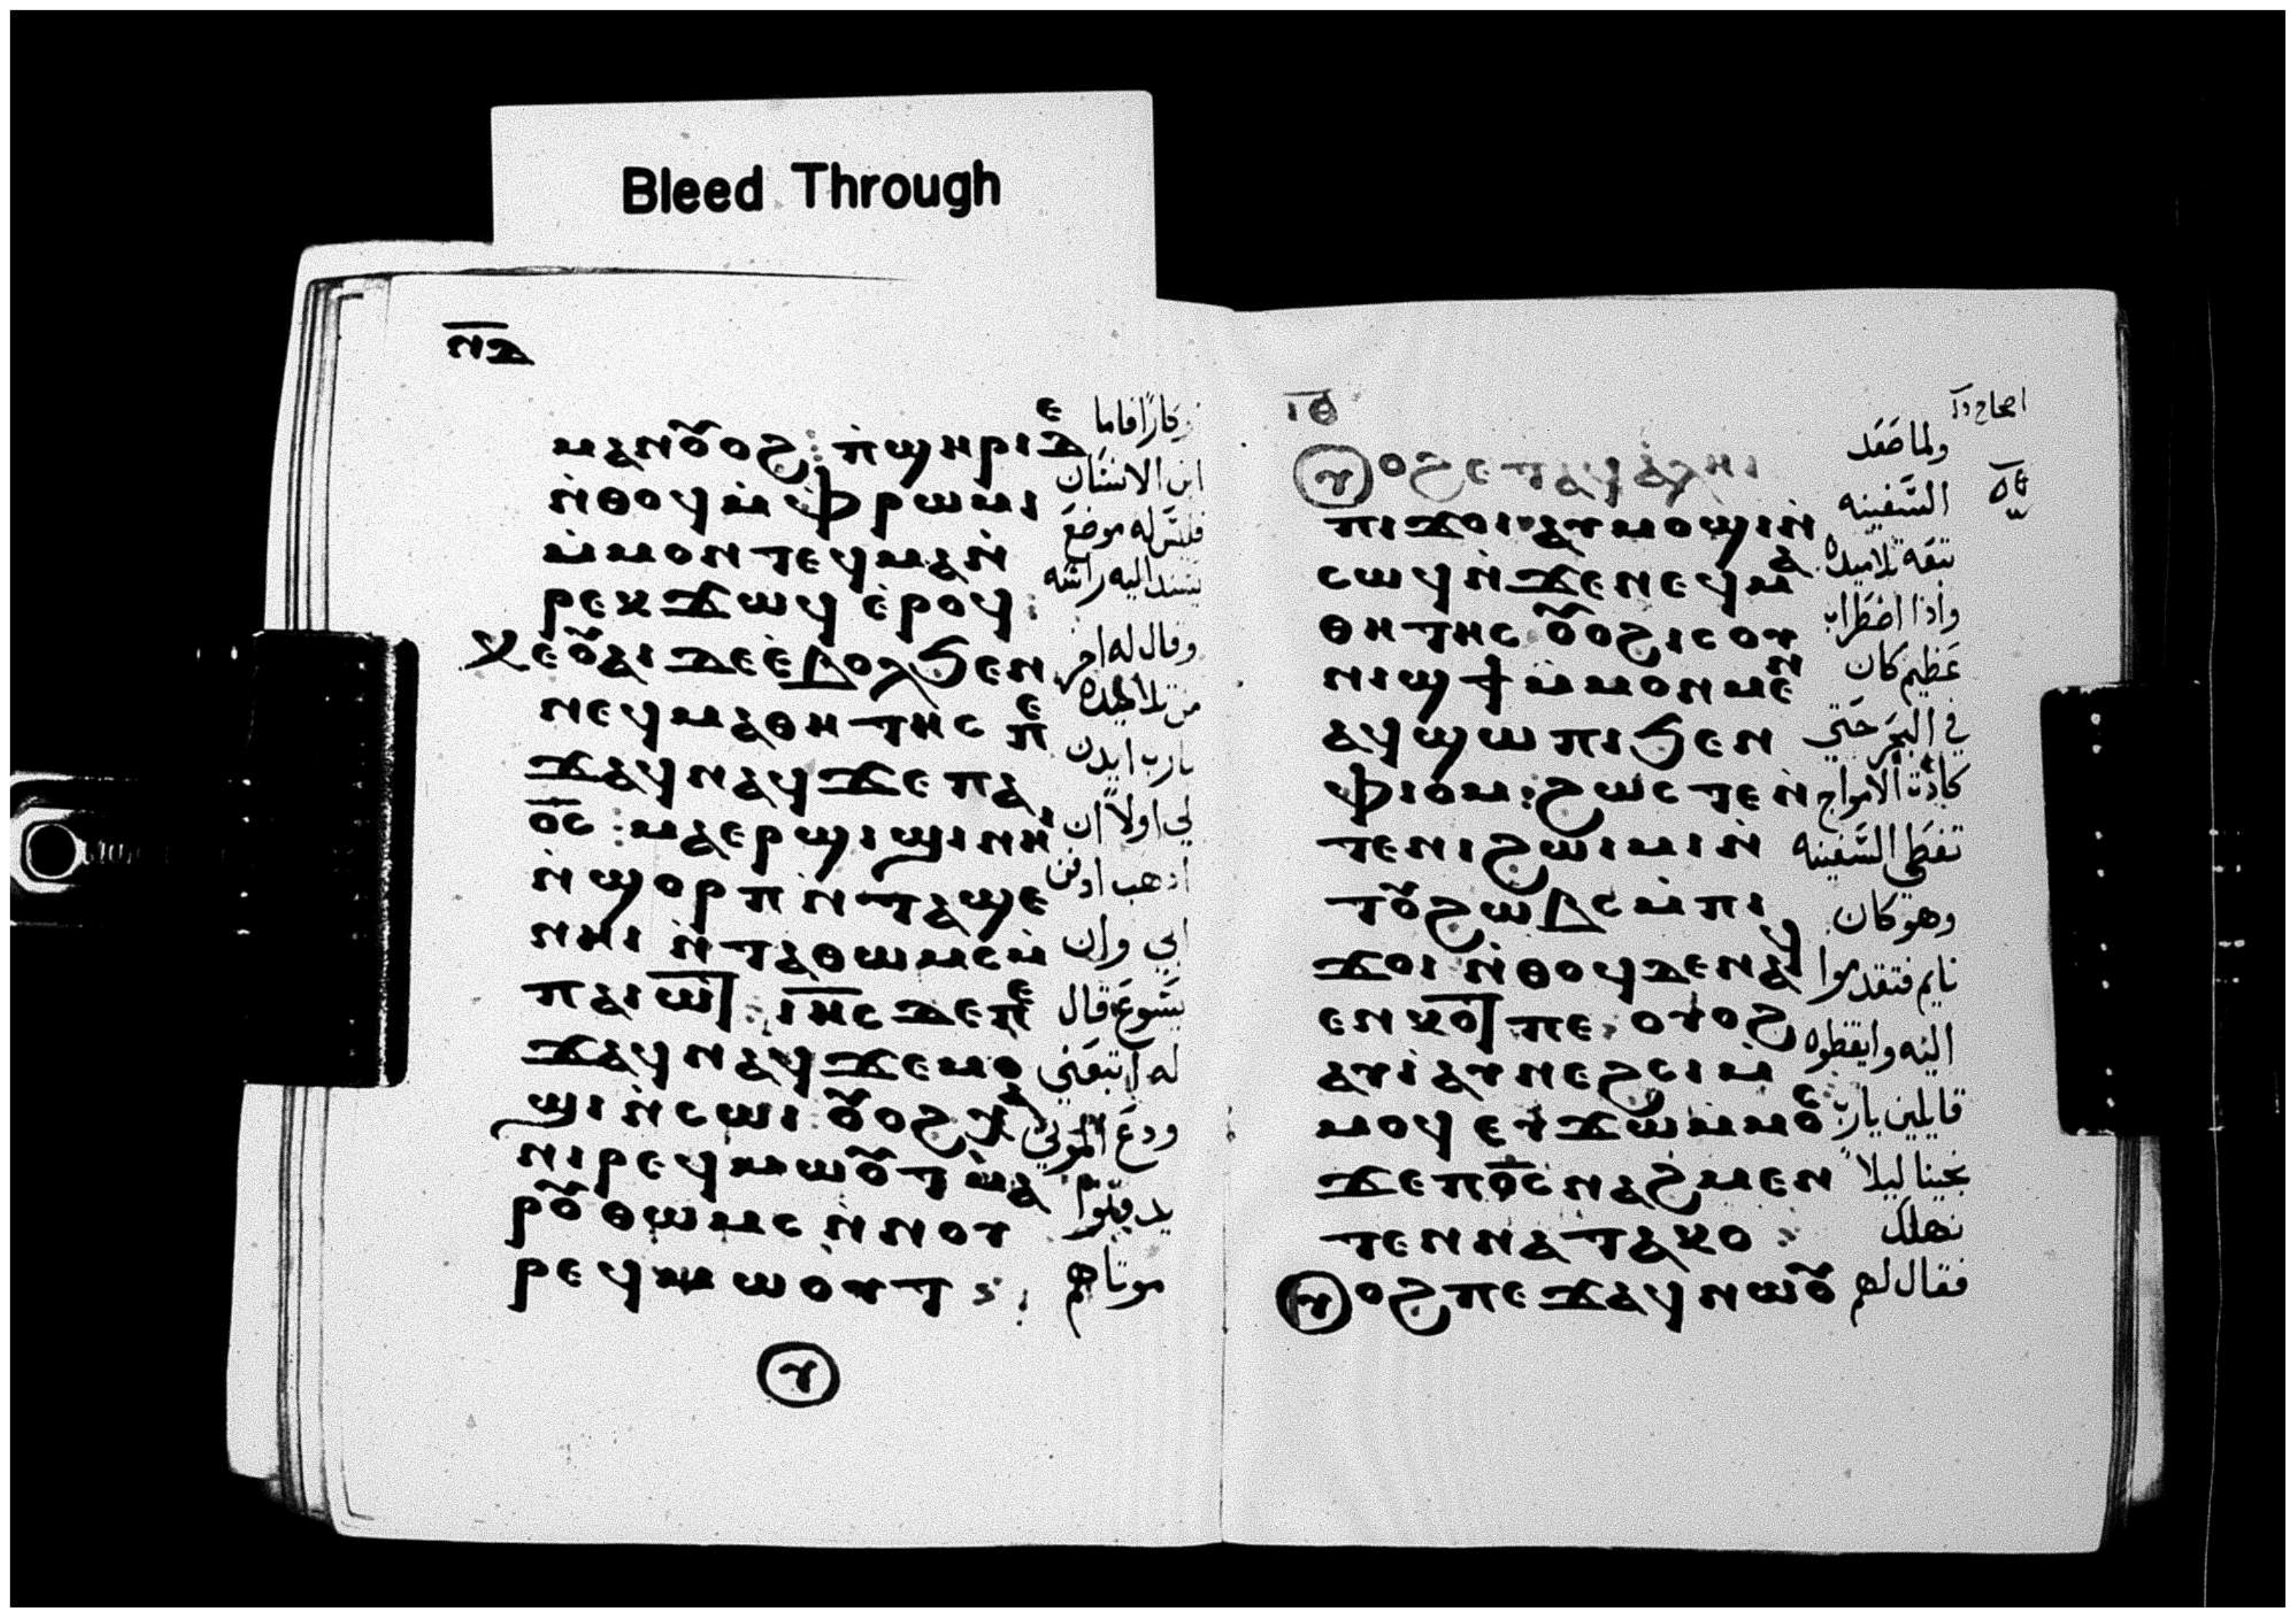 Bleed Through
ⲛⲇ
ⲙⲁⲛⲟⲩⲟϩ : ⲡ̀ϣⲏⲣⲓ ⲇⲉ
ⲛ̀ⲑⲟϥ ⲙ̀ⲫⲣⲱⲙⲓ
ⲙ̀ⲙⲟⲛⲧⲉϥⲙⲁⲛ̀
ⲣⲉⲕϫⲱϥ ⲉ̀ⲣⲟϥ :
ⲕⲉⲟⲩⲁⲓ ⲇⲉ ⲉ̀ⲃⲟⲗϧⲉⲛ
ⲛⲉϥⲙⲁⲑⲏⲧⲏⲥ ⲡⲉ
ϫⲁϥ ⲛⲁϥ ϫⲉ ⲡⲁ
ⲟ̅ⲥ̅ : ⲙⲁⲉⲣϣⲓϣⲓ ⲛⲏⲓ
ⲛ̀ϣⲟⲣⲡ ⲛ̀ⲧⲁϣⲉ
ⲛⲏⲓ ⲛ̀ⲧⲁⲑⲱⲙⲥ ⲙ̀
ⲡⲁⲓⲱⲧ : ⲓⲏ̅ⲥ̅ ⲇⲉ ⲡⲉ
ϫⲁϥ ⲛⲁϥ ϫⲉ ⲙⲟ
ϣⲓ ⲛ̀ⲥⲱⲓ ⲟⲩⲟϩ ⲭⲁ
ⲛⲓⲣⲉϥⲙⲱⲟⲩⲧ ⲙⲁ
ⲣⲟⲩⲑⲱⲙⲥ ⲛ̀ⲛⲟⲩ
ⲣⲉϥⲙⲱⲟⲩⲧ :
وكارًا فاما
ابن الانسان
فليس له موضع
يسند اليه راسه
وقال له اخر
من تلاميذه
يارب ايدن
لي اولاً ان
اذهب ادفن
ابي وان
يسوع قال
له اتبعني
ودع الموتي
يدفنوا
موتاهم
ⲓⲑ
ⲟⲩⲟϩ ⲉⲧⲁϥⲁⲗⲏⲓ
ⲡⲓϫⲟⲓ ⲁⲩⲙⲟϣⲓ ⲛ̀
ⲥⲱϥ ⲛ̀ϫⲉ ⲛⲉϥⲙⲁ
ⲑⲏⲧⲏⲥ ⲟⲩⲟϩ ⲓⲥ ⲟⲩ
ⲛⲓϣϯ ⲙ̀ⲙⲟⲛⲙⲉⲛ
ⲁϥϣⲱⲡⲓ ϧⲉⲛ
ⲫⲓⲟⲙ : ϩⲱⲥⲧⲉ ⲛ̀
ⲧⲉⲛⲓϩⲱⲓⲙⲓ ⲛ̀
ⲧⲟⲩϩⲱⲃⲥ ⲙ̀ⲡⲓ
ϫⲟⲓ ⲛ̀ⲑⲟϥ ⲇⲉ ⲛⲁϥ
ⲉⲛⲕⲟⲧ ⲡⲉ : ⲟⲩⲟϩ
ⲁⲩⲓ̀ ⲁⲩⲛⲉϩⲥⲓ ⲙ̀
ⲙⲟϥ ⲉⲩϫⲱ ⲙ̀ⲙⲟⲥ
ϫⲉ ⲡⲟ̅ⲥ̅ ⲛⲁϩⲙⲉⲛ
ⲧⲉⲛⲛⲁⲧⲁⲕⲟ :
ⲟⲩⲟϩ ⲡⲉϫⲁϥ ⲛⲱⲟⲩ
ولما صعد
السفينه
تبعه تلاميذه
واذا اضطراب
عظيم كان
في البحر حتي
كادت الامواج
تغطي السفينه
وهو كان
نايم فتقدموا
اليه وايقظوه
قايلين يارب
نجينا ليلاً
نهلك
فقال لهم